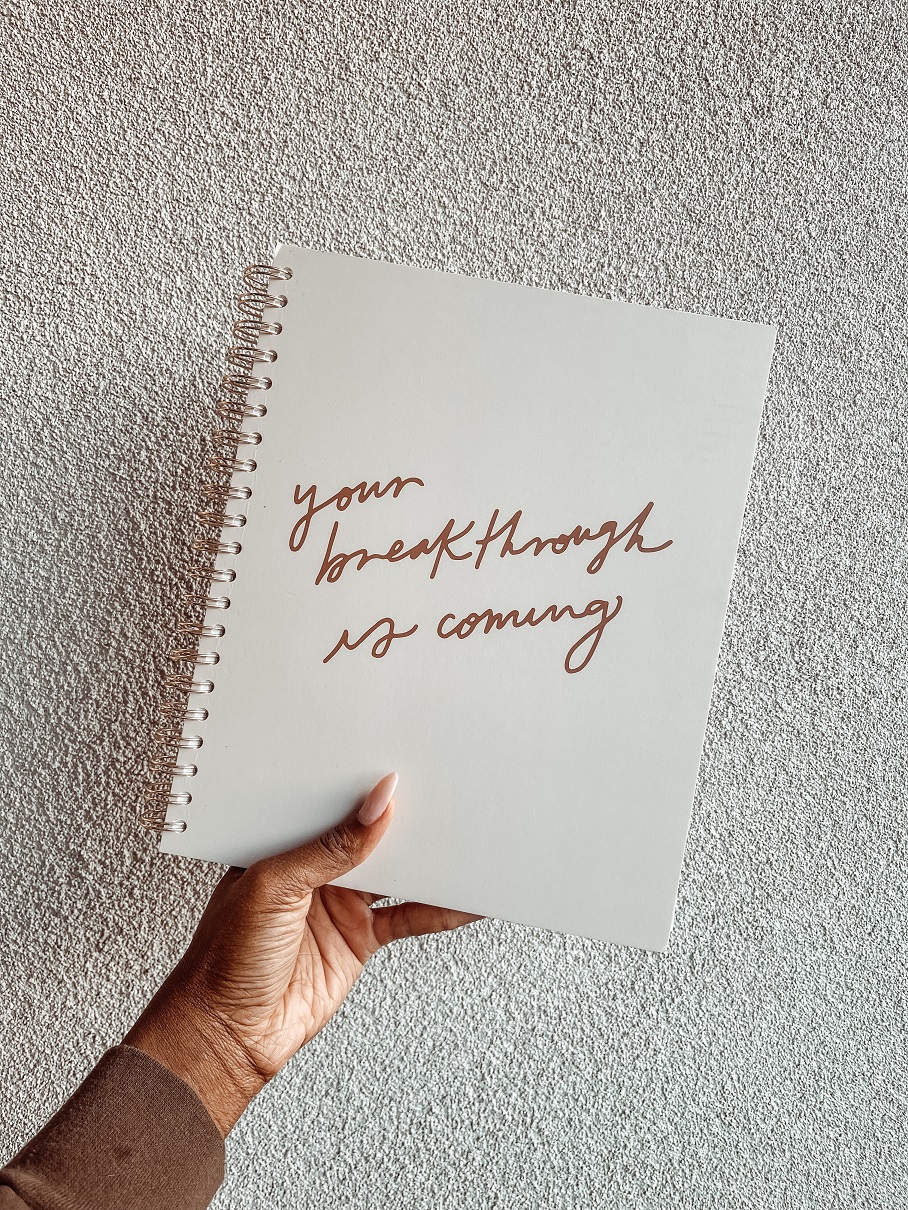 your
breakthrough
is coming